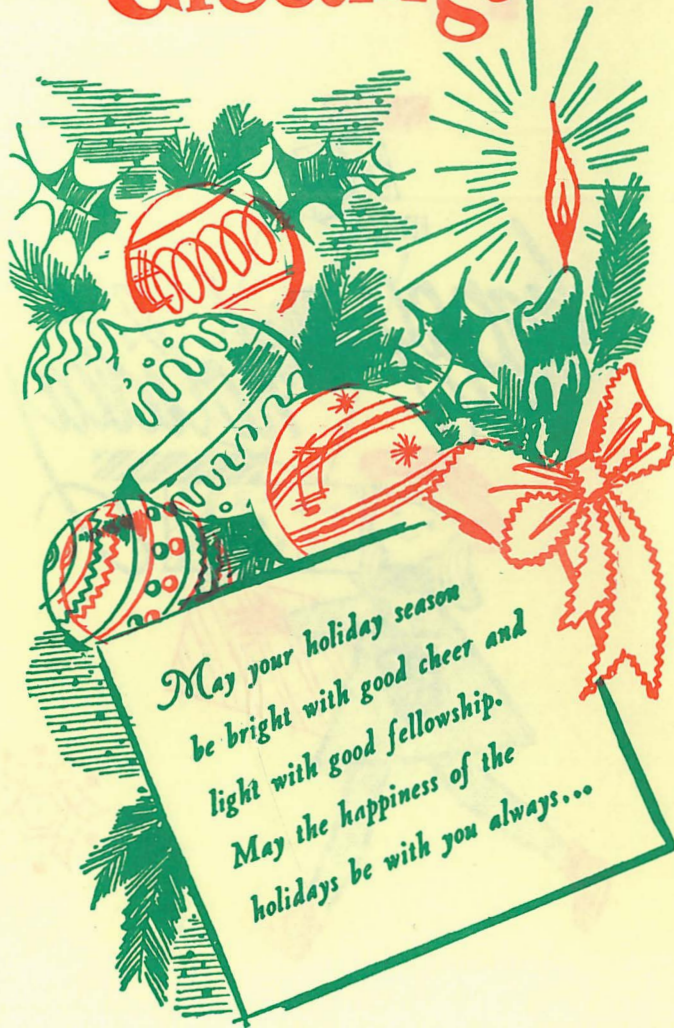 Greetings
May your holiday season
be bright with good cheer and
light with good fellowship.
May the happiness of the
holidays be with you always...